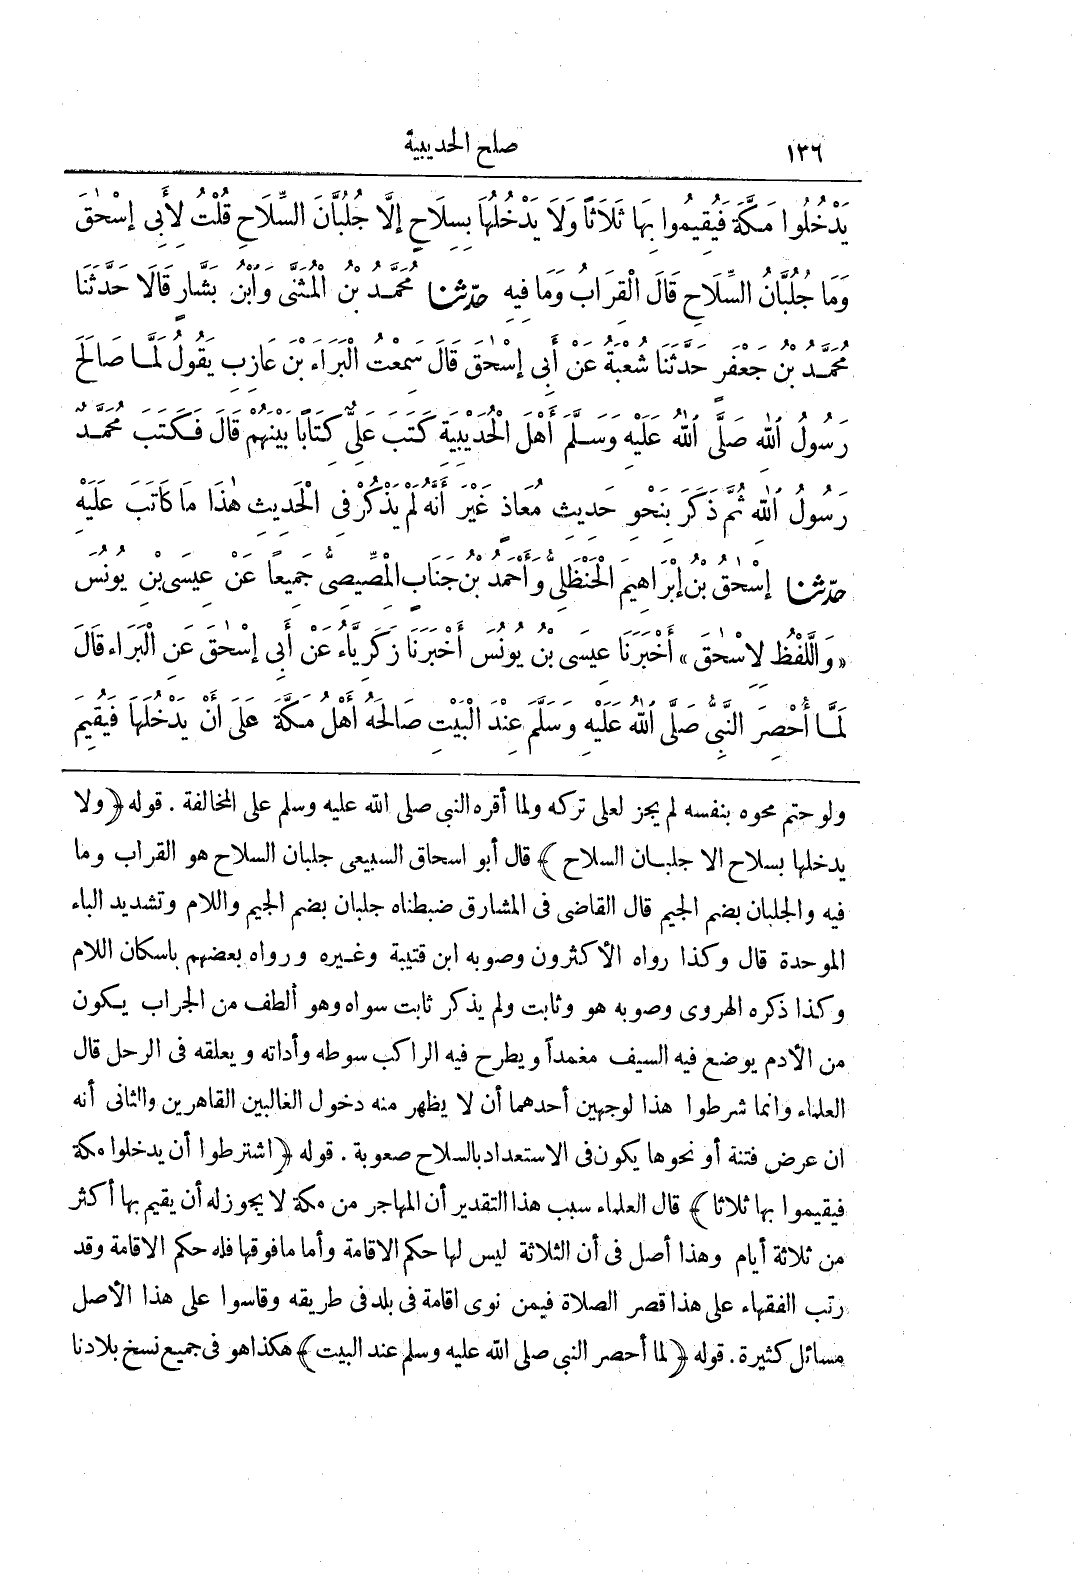 ١٣٦ صلح الحديبية
يَدْخُلُوا مَكَّةَ فَيُقِيمُوا بِهَا ثَلَاثًا وَلَا يَدْخُلُهَا بِسِلَاحٍ إِلَّا جُلُبَّانَ السِّلَاحِ قُلْتُ لِأَبِي إِسْحٰقَ
وَمَا جُلُبَّانُ السِّلَاحِ قَالَ الْقِرَابُ وَمَا فِيهِ حدثنا مُحَمَّدُ بْنُ الْمُثَنَّى وَابْنُ بَشَّارٍ قَالَا حَدَّثَنَا
مُحَمَّدُ بْنُ جَعْفَرٍ حَدَّثَنَا شُعْبَةُ عَنْ أَبِي إِسْحٰقَ قَالَ سَمِعْتُ الْبَرَاءَ بْنَ عَازِبٍ يَقُولُ لَمَّا صَالَحَ
رَسُولُ اللهِ صَلَّى اللهُ عَلَيْهِ وَسَلَّمَ أَهْلَ الْحُدَيْبِيَةِ كَتَبَ عَلِيٌّ كِتَابًا بَيْنَهُمْ قَالَ فَكَتَبَ مُحَمَّدٌ
رَسُولُ اللهِ ثُمَّ ذَكَرَ بِنَحْوِ حَدِيثِ مُعَاذٍ غَيْرَ أَنَّهُ لَمْ يَذْكُرْ فِي الْحَدِيثِ هٰذَا مَا كَاتَبَ عَلَيْهِ
حدثنا إِسْحٰقُ بْنُ إِبْرَاهِيمَ الْحَنْظَلِيُّ وَأَحْمَدُ بْنُ جَنَابٍ الْمِصِّيصِيُّ جَمِيعًا عَنْ عِيسَى بْنِ يُونُسَ
«وَاللَّفْظُ لِإِسْحٰقَ» أَخْبَرَنَا عِيسَى بْنُ يُونُسَ أَخْبَرَنَا زَكَرِيَّاءُ عَنْ أَبِي إِسْحٰقَ عَنِ الْبَرَاءِ قَالَ
لَمَّا أُحْصِرَ النَّبِيُّ صَلَّى اللهُ عَلَيْهِ وَسَلَّمَ عِنْدَ الْبَيْتِ صَالَحَهُ أَهْلُ مَكَّةَ عَلَى أَنْ يَدْخُلَهَا فَيُقِيمَ
ولو حتم محوه بنفسه لم يجز لعلى تركه ولما أقره النبى صلى الله عليه وسلم على المخالفة . قوله ﴿ولا
يدخلها بسلاح الا جلبان السلاح﴾ قال أبو اسحاق السبيعى جلبان السلاح هو القراب وما
فيه والجلبان بضم الجيم قال القاضى فى المشارق ضبطناه جلبان بضم الجيم واللام وتشديد الباء
الموحدة قال وكذا رواه الأكثرون وصوبه ابن قتيبة وغيره ورواه بعضهم باسكان اللام
وكذا ذكره الهروى وصوبه هو وثابت ولم يذكر ثابت سواه وهو ألطف من الجراب يكون
من الأدم يوضع فيه السيف مغمداً ويطرح فيه الراكب سوطه وأداته ويعلقه فى الرحل قال
العلماء وانما شرطوا هذا لوجهين أحدهما أن لا يظهر منه دخول الغالبين القاهرين والثانى أنه
ان عرض فتنة أو نحوها يكون فى الاستعداد بالسلاح صعوبة . قوله ﴿اشترطوا أن يدخلوا مكة
فيقيموا بها ثلاثا﴾ قال العلماء سبب هذا التقدير أن المهاجر من مكة لا يجوز له أن يقيم بها أكثر
من ثلاثة أيام وهذا أصل فى أن الثلاثة ليس لها حكم الاقامة وأما ما فوقها فله حكم الاقامة وقد
رتب الفقهاء على هذا قصر الصلاة فيمن نوى اقامة فى بلد فى طريقه وقاسوا على هذا الأصل
مسائل كثيرة . قوله ﴿لما أحصر النبى صلى الله عليه وسلم عند البيت﴾ هكذا هو فى جميع نسخ بلادنا